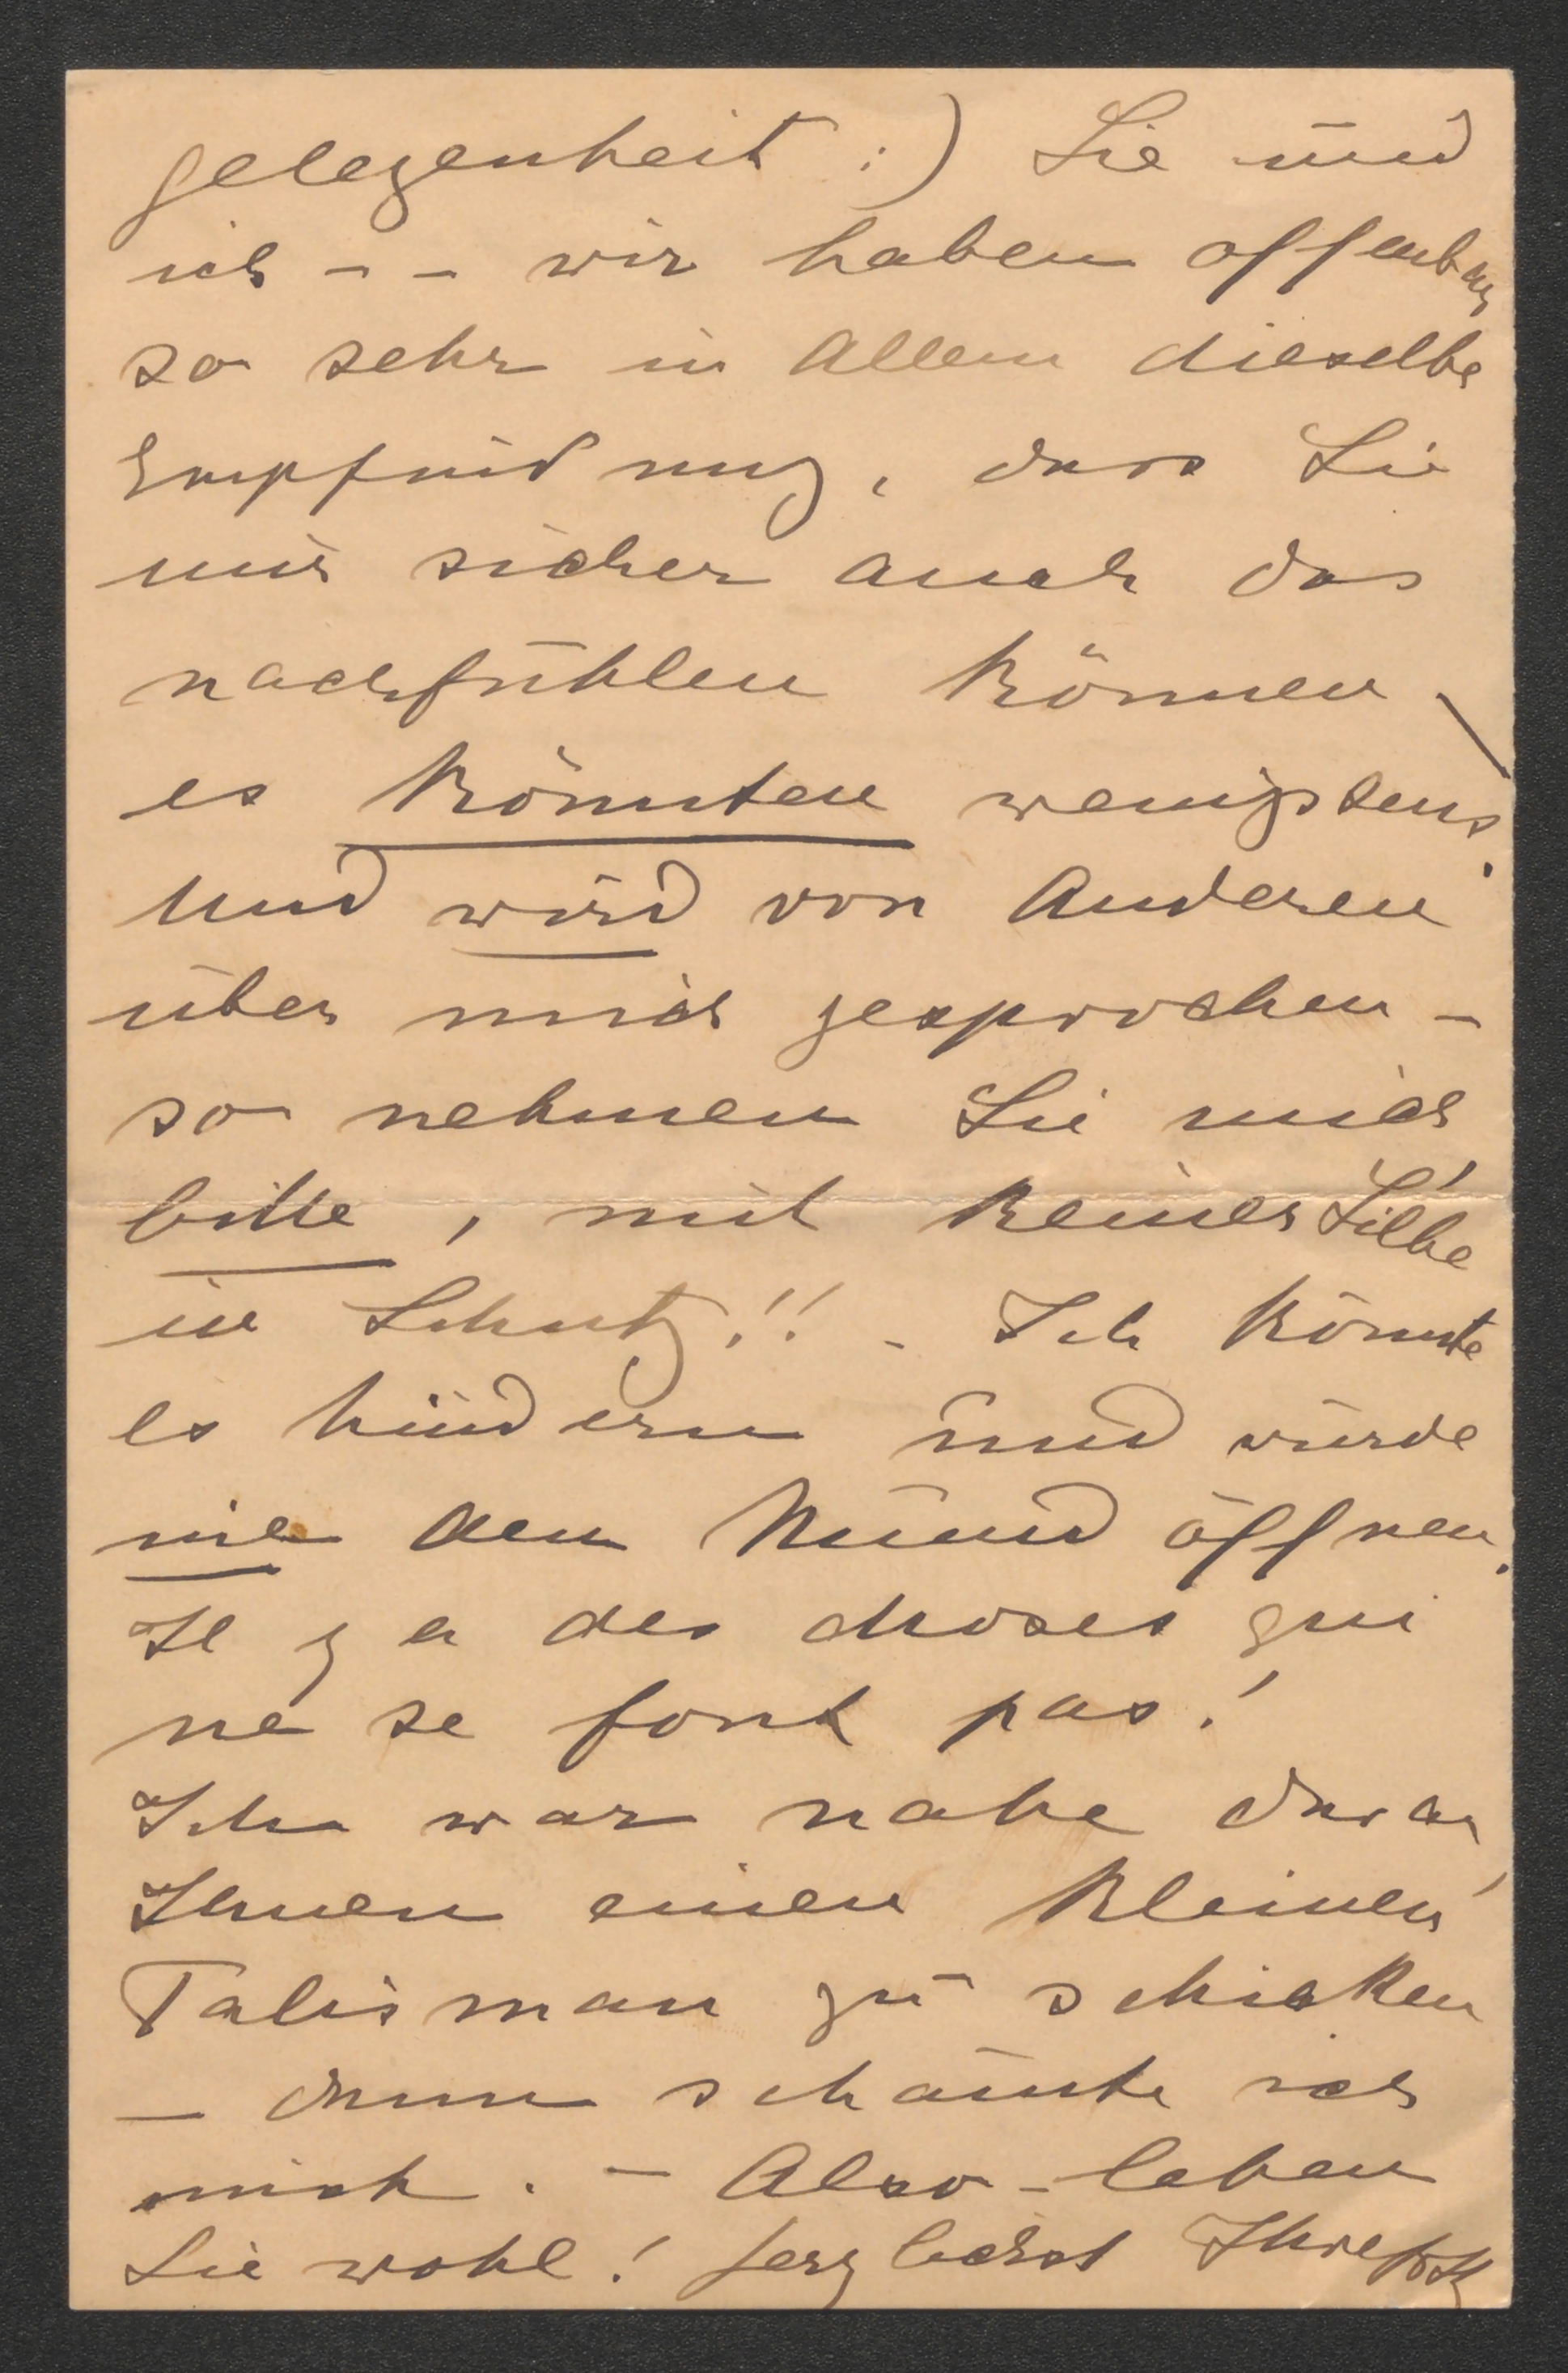 gelegenheit :) Sie und
ich - - wir haben offenbar
so sehr in Allem dieselbe
Empfindung, dass Sie
mir sicher auch das
nachfühlen können \
es könnten wenigstens.
Und wird von Anderen
über mich gesprochen -
so nehmen Sie mich
bitte, mit keiner Silbe
in Schutz!! - Ich könnte
es hindern und würde
nie den Mund öffnen.
Il y a des choses qui
ne se font pas!
Ich war nahe daran
Ihnen einen kleinen
Talisman zu schicken
- dann schämte ich
mich. - Also - leben
Sie wohl! Herzlichst Ihre